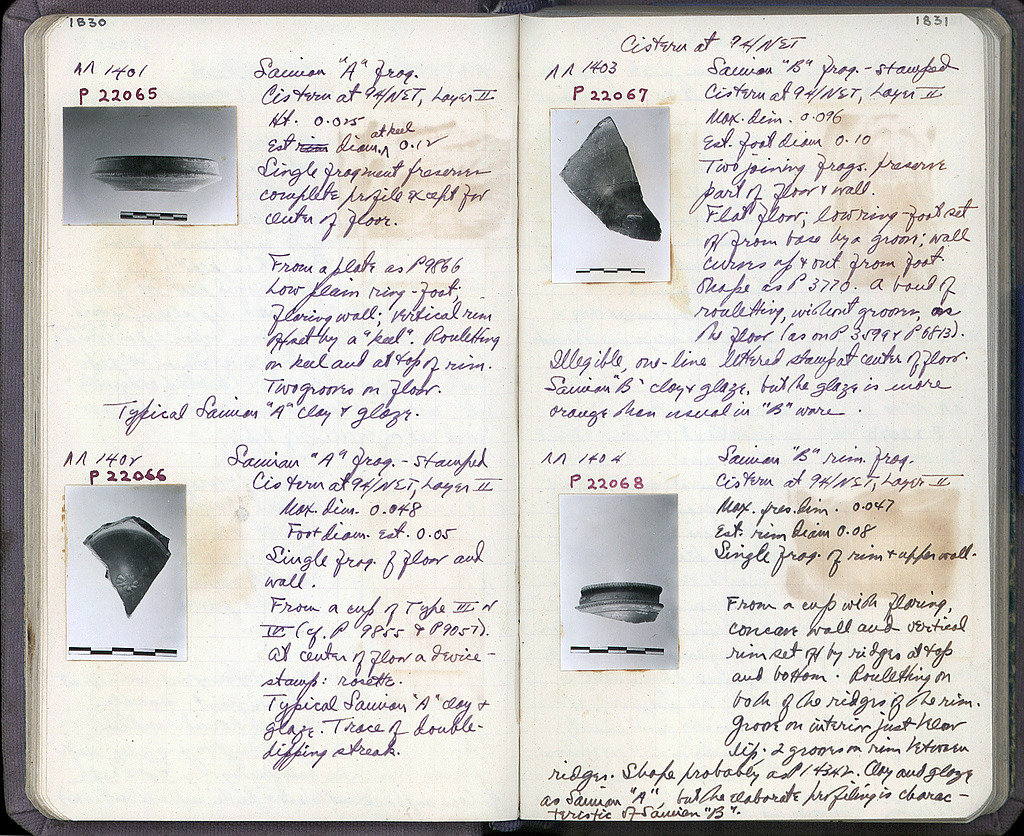 1830
ΛΛ 1401
P 22065
Samian "A" frag.
Cistern at 94/NET, Layer II
Ht. 0.025
Est rim diam. at keel 0.12
Single fragment preserves
complete profile except for
center of floor.
From a plate as P 9866
Low plain ring-foot;
flaring wall; vertical rim
offset by a "keel". Rouletting
on keel and at top of rim.
Two grooves on floor.
Typical Samian "A" clay & glaze.
ΛΛ 1402
P 22066
Samian "A" frag. - stamped
Cistern at 94/NET, Layer II
Max. dim. 0.048
Foot diam. est. 0.05
Single frag of floor and
wall.
From a cup of Type III or
IV (cf. P 9855 & P 9057).
At center of floor a device-
stamp: rosette.
Typical Samian "A" clay &
glaze. Trace of double-
dipping streak.
1831
Cistern at 94/NET
ΛΛ 1403
P 22067
Samian "B" frag. - stamped
Cistern at 94/NET, Layer II
Max. dim. 0.096
Est. foot diam 0.10
Two joining frags. preserve
part of floor & wall.
Flat floor; low ring-foot set
off from base by a groove; wall
curves up & out from foot.
Shape as P 3770. A band of
rouletting, without grooves, on
the floor (as on P 3599 & P 6813).
Illegible, one-line lettered stamp at center of floor.
Samian "B" clay & glaze, but the glaze is more
orange than usual in "B" ware.
ΛΛ 1404
P 22068
Samian "B" rim frag.
Cistern at 94/NET, Layer II
Max. pres. dim. 0.047
Est. rim diam 0.08
Single frag. of rim & upper wall.
From a cup with flaring,
concave wall and vertical
rim set off by ridges at top
and bottom. Rouletting on
both of the ridges of the rim.
Groove on interior just below
lip. 2 grooves on rim between
ridges. Shape probably as P 14242. Clay and glaze
as Samian "A", but the elaborate profiling is charac-
teristic of Samian "B".